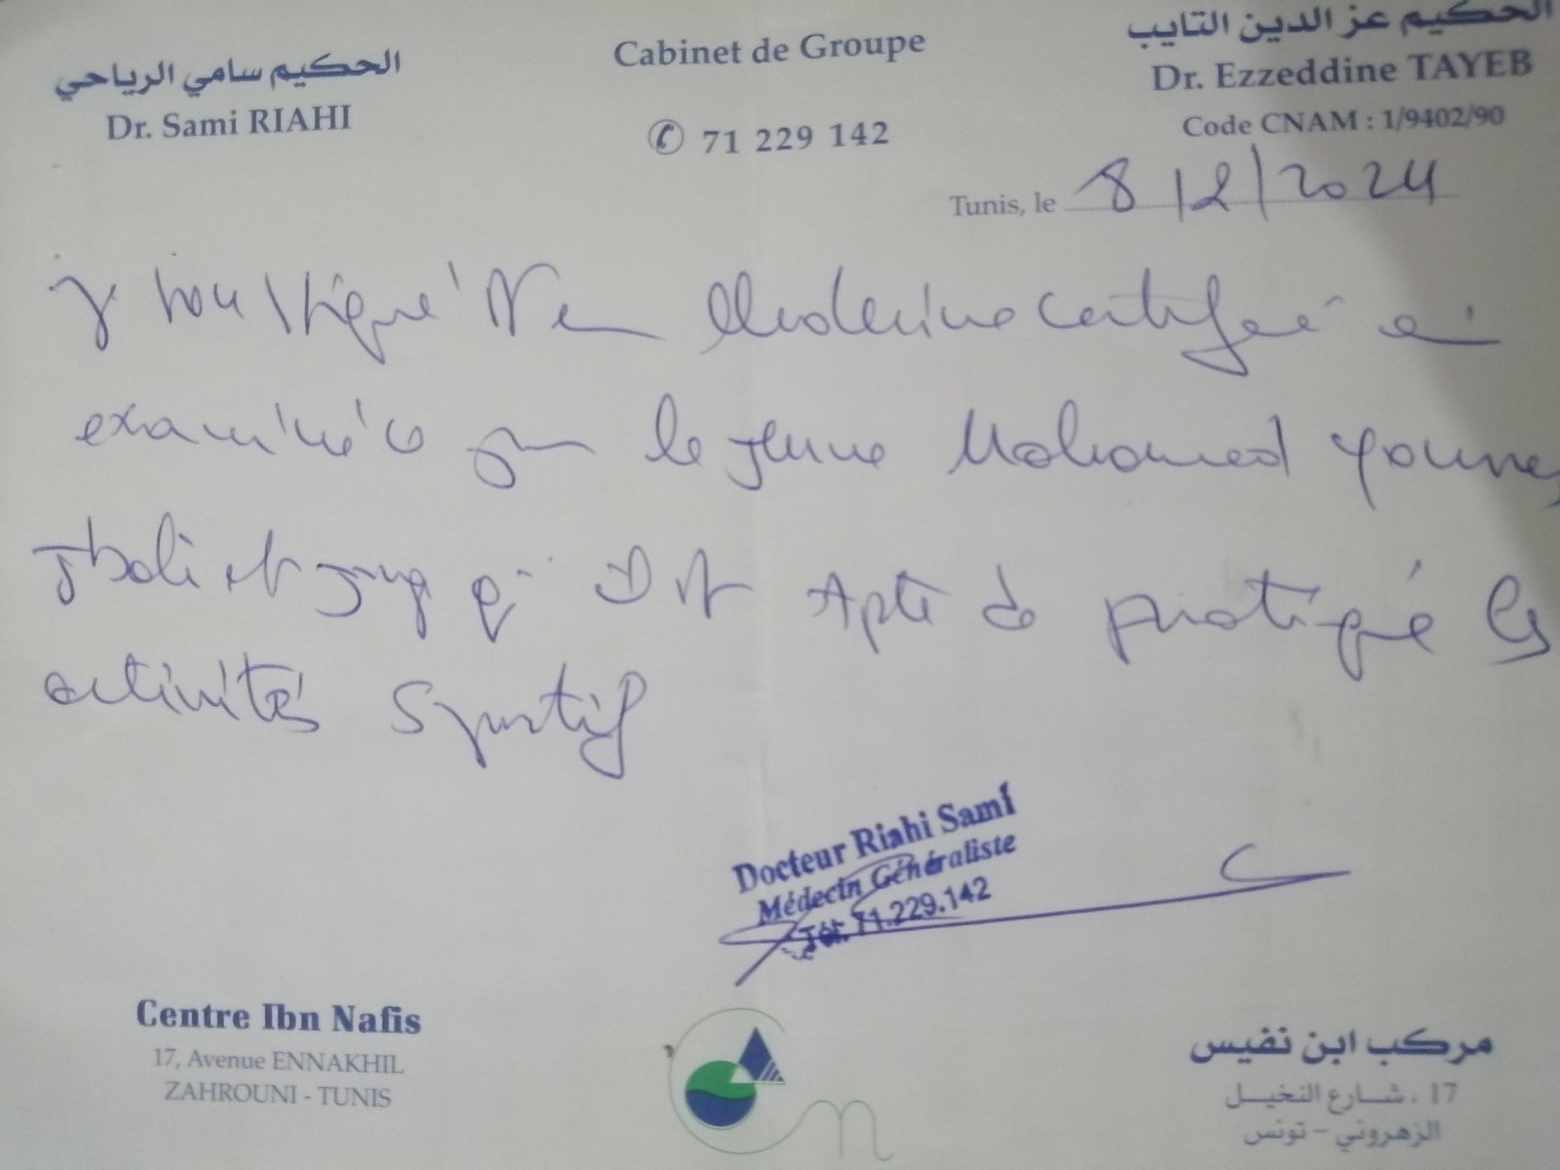 الحكيم سامي الرياحي
Dr. Sami RIAHI
Cabinet de Groupe
✆ 71 229 142
الحكيم عز الدين التايب
Dr. Ezzeddine TAYEB
Code CNAM : 1/9402/90
Tunis, le 8/2/2024
soussigné en Medecine certifie
examiné ce jour le jeune Mohamed Younes
Jbali et juge qi est Apte de pratiqué les
activités sportif
Docteur Riahi Sami
Médecin Généraliste
Tél. 71.229.142
Centre Ibn Nafis
17, Avenue ENNAKHIL
ZAHROUNI - TUNIS
مركب ابن نفيس
17 ، شارع النخيل
الزهروني - تونس